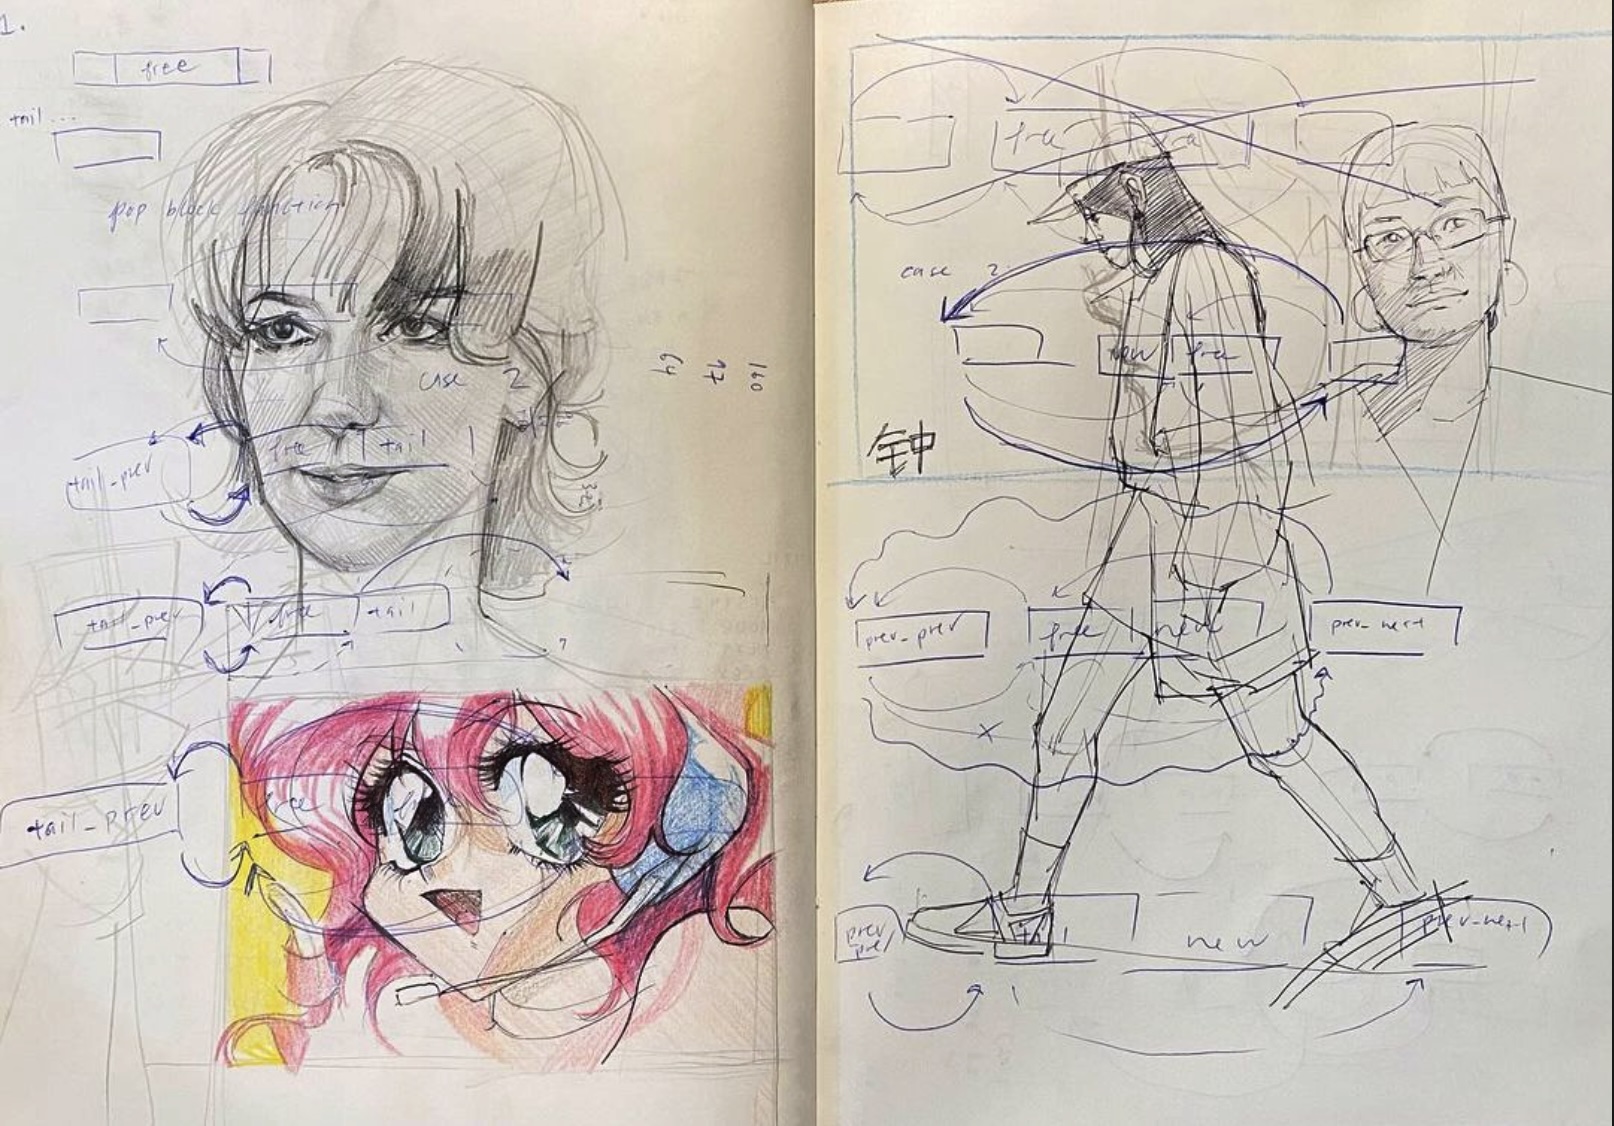 1.
free
tail ...
pop block function
case 2
160
77
64
free tail
tail_prev
tail_prev free tail
free
tail_prev
free
case 2
new free
钟
prev_prev free new prev_next
x
prev
prev new prev_next